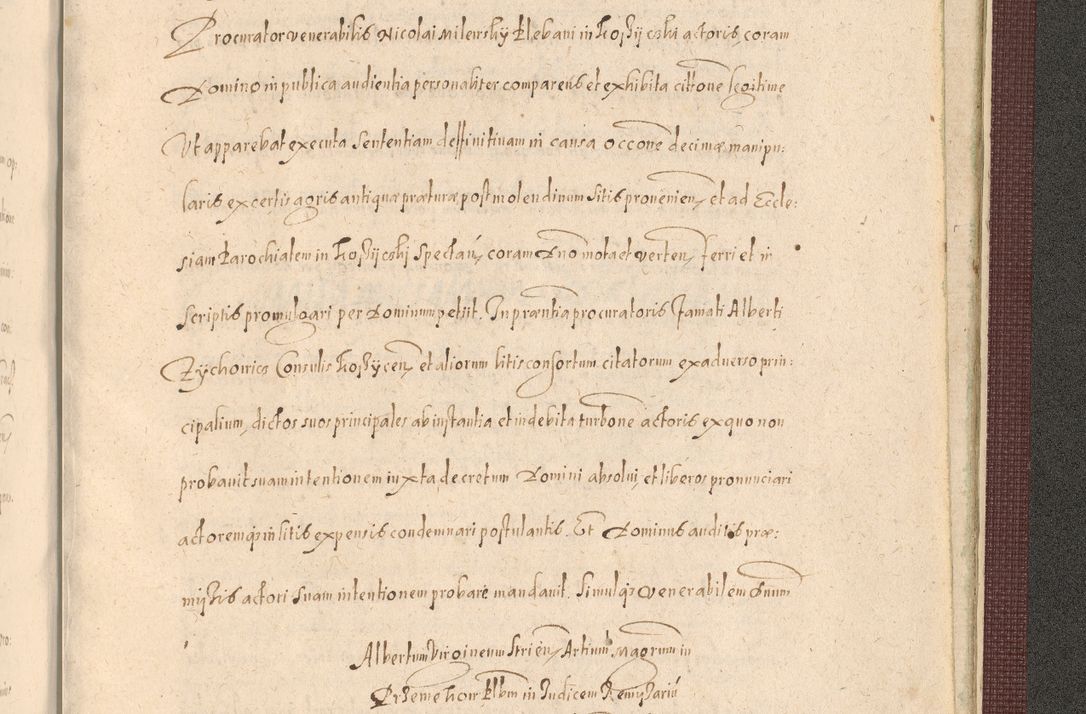 Procurator venerabilis Nicolai Milewsky Plebani in Koszijczki actoris, coram
Domino in publica audientia personaliter comparens et exhibita cittone legitime
Ut apparebat executa Sententiam deffinitivam in causa occone decimæ manipu:
laris ex certis agris antiquæ præturæ post molendinum sitis provenien, et ad Eccle:
siam Parochialem in Koszijczki spectan, coram Dno mota et verten, ferri et in
scriptis promulgari per Dominum petiit. In præntia procuratoris Famati Alberti
Zychowicz Consulis Koszycen, et aliorum litis consortum citatorum ex adverso prin:
cipalium, dictos suos principales ab instantia et indebita turbone actoris ex quo non
probavit suam intentionem iuxta decretum Domini absolvi, et liberos pronunciari
actoremqs in litis expensis condemnari postulantis. Et Dominus auditis præ:
missis actori suam intentionem probare mandavit. Simulqs Venerabilem Dnum
Albertum Virgineum Strien, Artium Magrum in
Przemekow Plbm in Judicem Remissariu